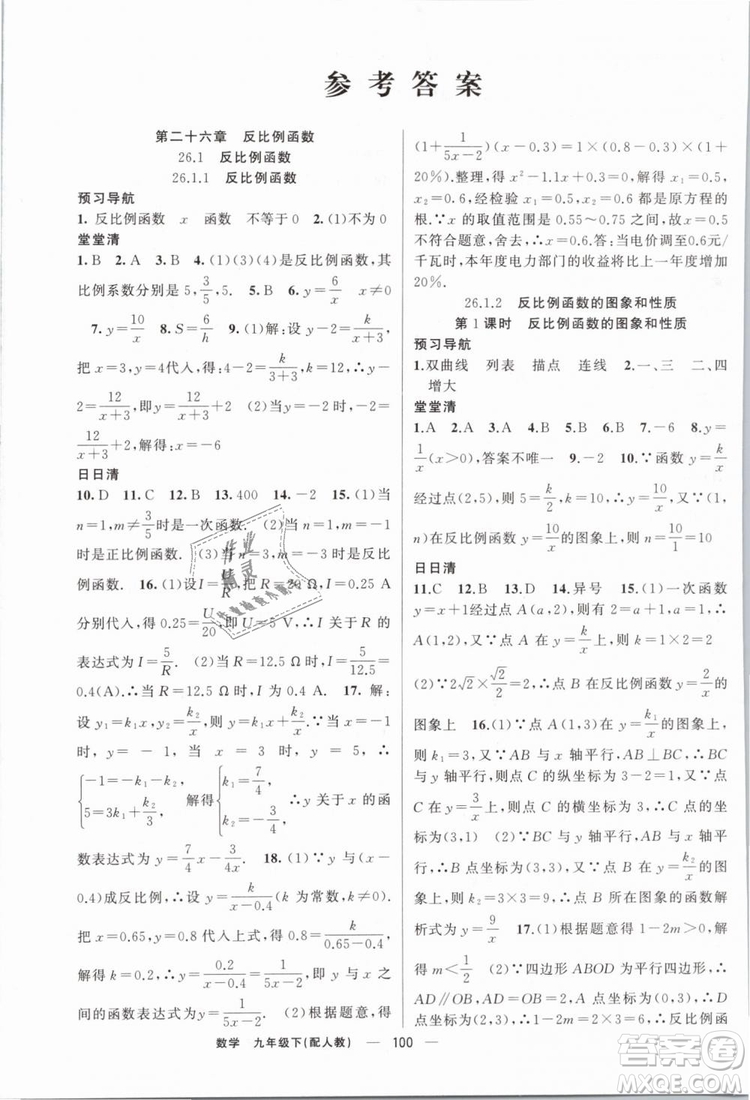 参考答案
第二十六章 反比例函数
26.1 反比例函数
26.1.1 反比例函数
预习导航
1. 反比例函数 x 函数 不等于0 2. (1)不为0
堂堂清
1. B 2. A 3. B 4. (1)(3)(4)是反比例函数,其
比例系数分别是5,3/5,5. 5. B 6. y=6/x x≠0
7. y=10/x 8. S=6/h 9. (1)解:设y=k/(x+3)+2,
把x=3,y=4代入,得4=k/(3+3)+2,∴k=12.∴y
=12/(x+3)+2,即y=12/(x+3)+2 (2)当y=-2时,-2=
12/(x+3)+2,解得:x=-6
日日清
10. D 11. C 12. B 13. 400 14. -2 15. (1)当
n=1,m≠3/5时是一次函数. (2)当
时是正比例函数. (3)当
例函数. 16. (1)设I=U/R,把R=20,I=0.25
分别代入,得0.25=U/20,即U=5 V,∴I与R的
表达式为I=5/R. (2)当R=12.5 Ω时,I=5/12.5=
0.4(A).∴当R=12.5 Ω时,I为0.4 A 17. 解:
设y₁=k₁x,y₂=k₂/x,∴y=k₁x+k₂/x.∵当x=1
时,y=-1当x=3时,y=5,∴
{-1=-k₁-k₂, 5=3k₁+k₂/3. 解得{k₁=7/4, k₂=-3/4. ∴y关于x的函
数表达式为y=7/4x-3/4x. 18. (1)∵y与(x-
0.4)成反比例,∴设y=k/(x-0.4)(k为常数,k≠0).
把x=0.65,y=0.8代入上式,得0.8=k/(0.65-0.4),
解得k=0.2,∴y=0.2/(x-0.4)=1/(5x-2),∴y与x之
间的函数表达式为y=1/(5x-2) (2)根据题意,得
(1+1/(5x-2))(x-0.3)=1×(0.8-0.3)×(1+
20%).整理,得x²-1.1x+0.3=0,解得x₁=0.5,
x₂=0.6=0.经检验x₁=0.5,x₂=0.6都是原方程的
根.∵x的取值范围是0.55~0.75之间,故x=0.5
不符合题意,舍去,∴x=0.6.答:当电价调至0.6元/
千瓦时,本年度电力部门的收益将比上一年度增加
20%.
26.1.2 反比例函数的图象和性质
第1课时 反比例函数的图象和性质
预习导航
1. 双曲线 列表 描点 连线 2. 一、三 二、四
增大
堂堂清
1. A 2. A 3. A 4. C 5. B 6. B 7. -6 8. y=
1/x(x>0),答案不唯一 9. 6 10. ∵函数y=k/x
经过点(2,5),则5=k/2,k=10.∴y=10/x.∵点(1,
n)在反比例函数y=10/x的图象上,∴n=10/1=10
日日清
11. C 12. B 13. D 14. 异号 15. (1)一次函数
y=x+1经过点A(a,2),则有2=a+1,a=1.∴
A(1,2),∴2=k/1,k=2,∴反比例函数y=2/x
(2)∵2√2×√2/2=2,∴点B在反比例函数y=2/x的
图象上 16. (1)∵点A(1,3)在y=k₁/x的图象上,∴
k₁=3.∵BC与x轴平行,AB⊥BC,∴AB与
y轴平行,则点C的纵坐标为3-2=1,又∵点
C在y=3/x的图象上,∴点C的横坐标为3,∴点C的
坐标为(3,1) (2)∵BC与x轴平行,AB与y轴平
行,则点B的坐标为(3,3),∵点B在y=k₂/x的图象
上,∴k₂=3×3=9,∴点B所在的图象的函数解
析式为y=9/x 17. (1)根据题意得1-2m>0,解
得m<1/2 (2)∵四边形ABOD为平行四边形,∴
AD∥OB,AD=OB=2,而A点坐标为(0,3),∴
D点坐标为(2,3),∴1-2m=2×3=6,∴反比例函
数学 九年级下(配人教) — 100 —